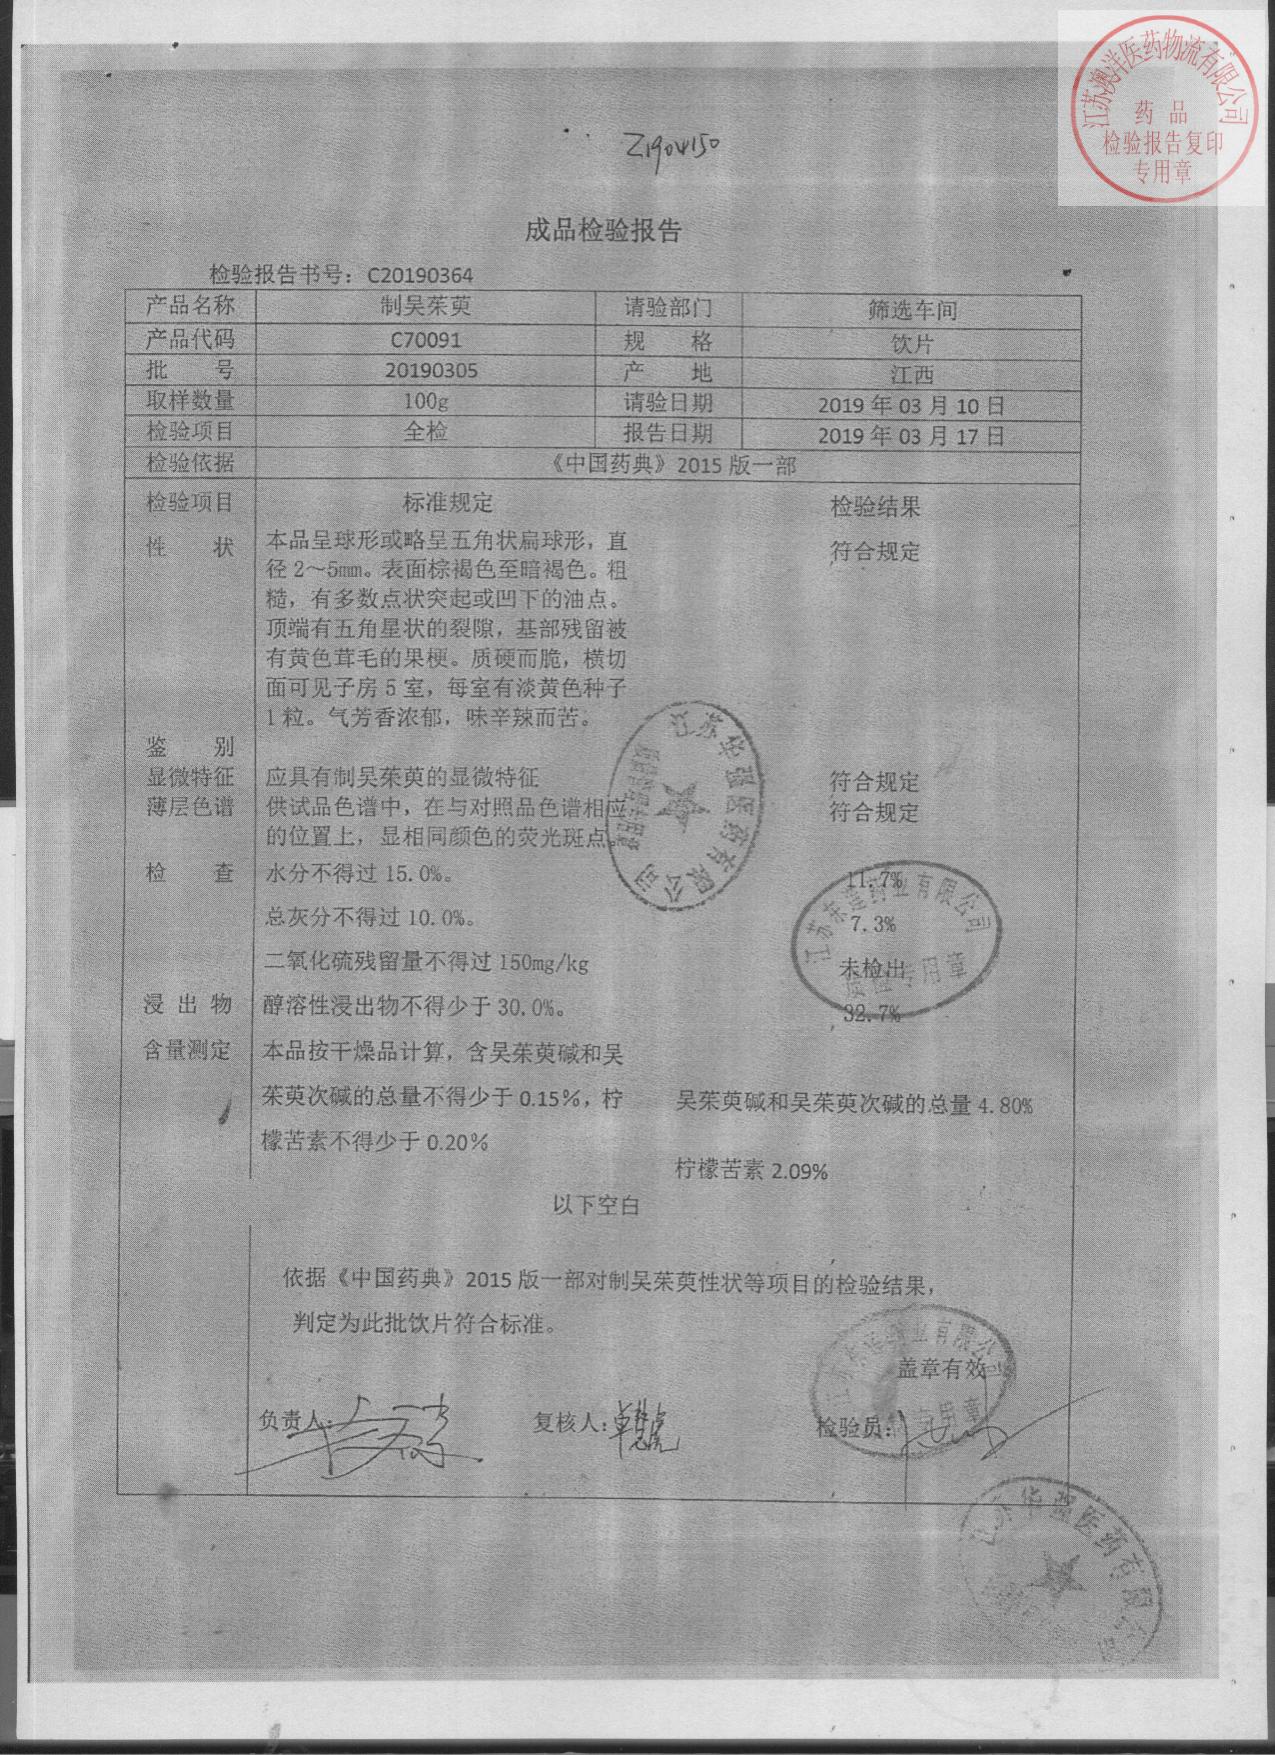 江苏澳洋医药物流有限公司
药品
检验报告复印
专用章
Z1904150
成品检验报告
检验报告书号：C20190364
产品名称 制吴茱萸 请验部门 筛选车间
产品代码 C70091 规 格 饮片
批 号 20190305 产 地 江西
取样数量 100g 请验日期 2019 年 03 月 10 日
检验项目 全检 报告日期 2019 年 03 月 17 日
检验依据 《中国药典》2015 版一部
检验项目 标准规定 检验结果
性 状 本品呈球形或略呈五角状扁球形，直 符合规定
径 2～5mm。表面棕褐色至暗褐色。粗
糙，有多数点状突起或凹下的油点。
顶端有五角星状的裂隙，基部残留被
有黄色茸毛的果梗。质硬而脆，横切
面可见子房 5 室，每室有淡黄色种子
1 粒。气芳香浓郁，味辛辣而苦。
鉴 别
显微特征 应具有制吴茱萸的显微特征 符合规定
薄层色谱 供试品色谱中，在与对照品色谱相应 符合规定
的位置上，显相同颜色的荧光斑点。
江苏华强医药有限公司
检 查 水分不得过 15.0%。 11.7%
总灰分不得过 10.0%。 7.3%
二氧化硫残留量不得过 150mg/kg 未检出
浸 出 物 醇溶性浸出物不得少于 30.0%。 32.7%
含量测定 本品按干燥品计算，含吴茱萸碱和吴
茱萸次碱的总量不得少于 0.15%，柠 吴茱萸碱和吴茱萸次碱的总量 4.80%
檬苦素不得少于 0.20%
柠檬苦素 2.09%
以下空白
依据《中国药典》2015 版一部对制吴茱萸性状等项目的检验结果，
判定为此批饮片符合标准。
盖章有效
负责人： 复核人： 检验员：
江苏华强医药有限公司